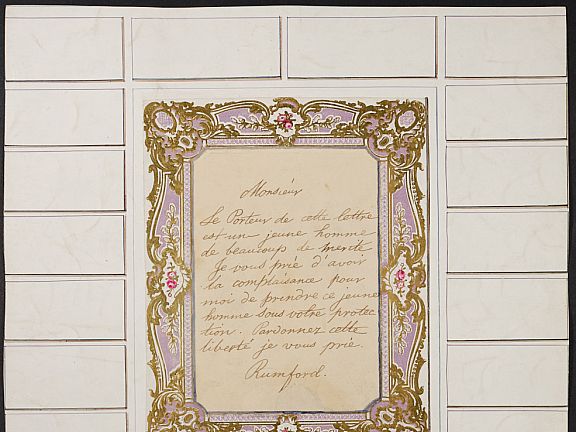 Monsieur
Le Porteur de cette lettre
est un jeune homme
de beaucoup de merite
Je vous prié d'avoir
la complaisance pour
moi de prendre ce jeune
homme sous votre protec
tion. Pardonnez cette
liberté je vous prie.
Rumford.